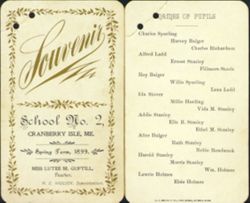 Souvenir
School No. 2,
CRANBERRY ISLE, ME.
Spring Term, 1899.
MISS LUTIE M. GUPTILL,
Teacher.
NAMES OF PUPILS
Charles Spurling
Harvey Bulger
Charles Richardson
Alfred Ladd
Ernest Stanley
Fillmore
Roy Bulger
Willie Spurling
Lena Ladd
Ida Stover
Millie Harding
Vida M. Stanley
Addie Stanley
Elle E. Stanley
Ethel M. Stanley
Bulger
Ruth Stanley
Nettie
Harold Stanley
Morris Stanley
Wm. Holmes
Lewis Holmes
Elsie Holmes